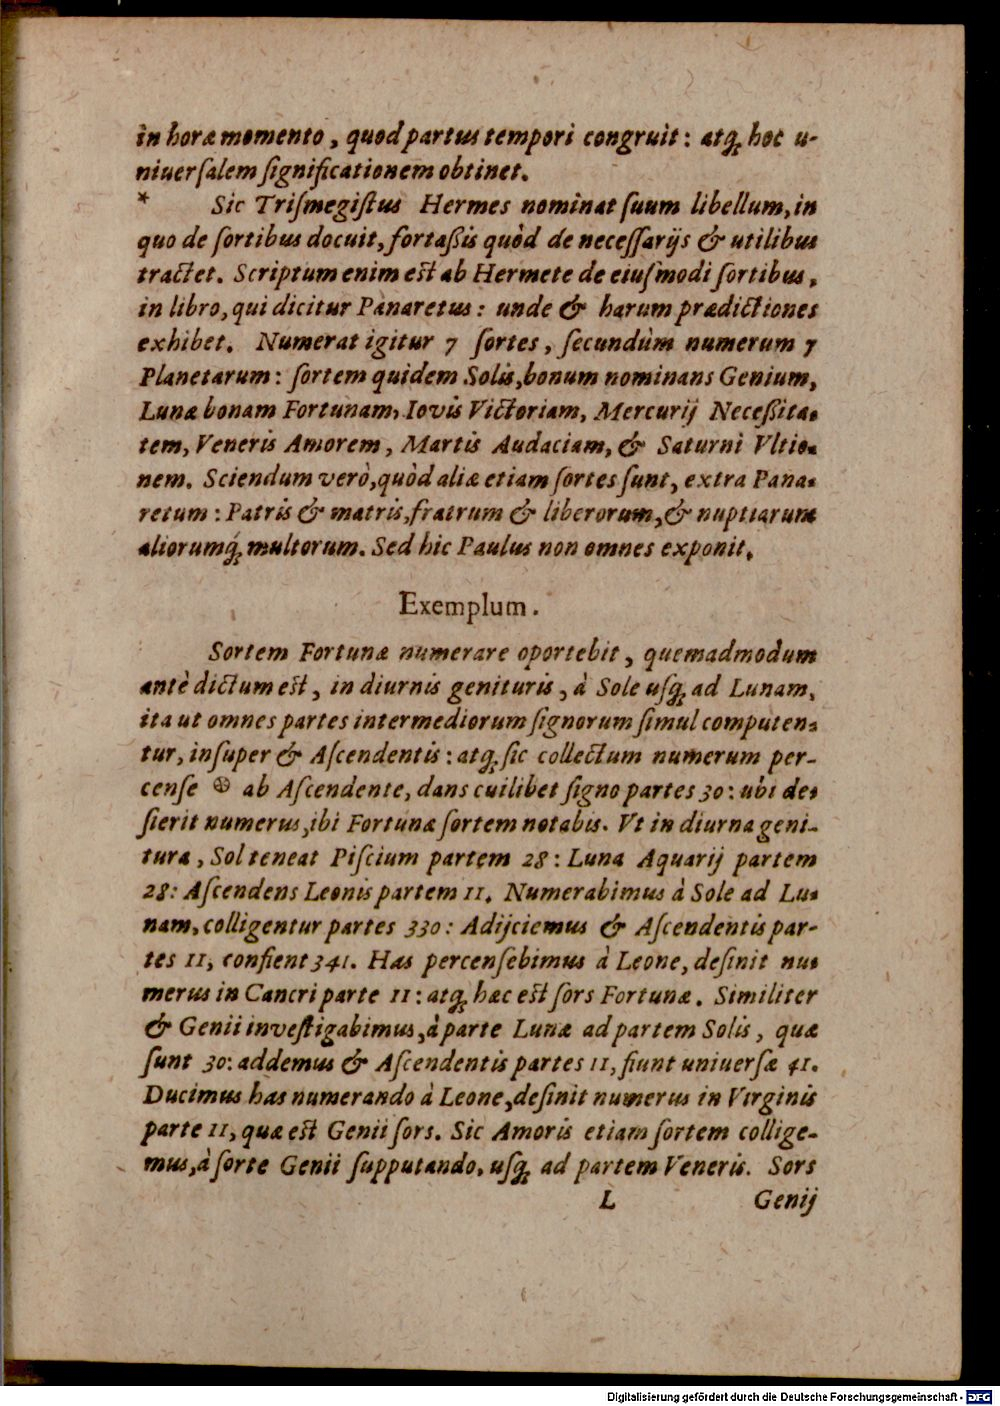 in horæ momento, quod partus tempori congruit: atq; hoc u-
niuerſalem ſignificationem obtinet.
* Sic Triſmegiſtus Hermes nominat ſuum libellum, in
quo de ſortibus docuit, fortaßis quòd de neceſſarijs & utilibus
tractet. Scriptum enim eſt ab Hermete de eiuſmodi ſortibus,
in libro, qui dicitur Panaretus: unde & harum prædictiones
exhibet. Numerat igitur 7 ſortes, ſecundùm numerum 7
Planetarum: ſortem quidem Solis, bonum nominans Genium,
Lunæ bonam Fortunam, Iovis Victoriam, Mercurij Neceßita-
tem, Veneris Amorem, Martis Audaciam, & Saturni Vltio-
nem. Sciendum verò, quòd aliæ etiam ſortes ſunt, extra Pana-
retum: Patris & matris, fratrum & liberorum, & nuptiarum
aliorumq́; multorum. Sed hic Paulus non omnes exponit.
Exemplum.
Sortem Fortunæ numerare oportebit, quemadmodum
antè dictum eſt, in diurnis genituris, à Sole uſq; ad Lunam,
ita ut omnes partes intermediorum ſignorum ſimul computen-
tur, inſuper & Aſcendentis: atq; ſic collectum numerum per-
cenſe ⊗ ab Aſcendente, dans cuilibet ſigno partes 30: ubi de-
ſierit numerus, ibi Fortunæ ſortem notabis. Vt in diurna geni-
tura, Sol teneat Piſcium partem 28: Luna Aquarij partem
28: Aſcendens Leonis partem 11. Numerabimus à Sole ad Lu-
nam, colligentur partes 330: Adijciemus & Aſcendentis par-
tes 11, confient 341. Has percenſebimus à Leone, deſinit nu-
merus in Cancri parte 11: atq; hæc eſt ſors Fortunæ. Similiter
& Genii inveſtigabimus, à parte Lunæ ad partem Solis, quæ
ſunt 30: addemus & Aſcendentis partes 11, fiunt uniuerſæ 41.
Ducimus has numerando à Leone, deſinit numerus in Virginis
parte 11, quæ eſt Genii ſors. Sic Amoris etiam ſortem collige-
mus, à ſorte Genii ſupputando, uſq; ad partem Veneris. Sors
L Genij
Digitalisierung gefördert durch die Deutsche Forschungsgemeinschaft - DFG